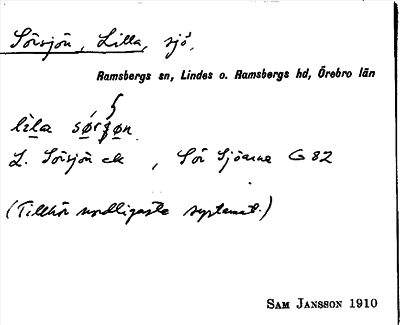 Sörsjön, Lilla, sjö.
Ramsbergs sn, Lindes o. Ramsbergs hd, Örebro län
lila sørʃøn
L. Sörsjön ek, Sör Sjöarne G 82
(Tillhör nordligaste systemet.)
SAM JANSSON 1910